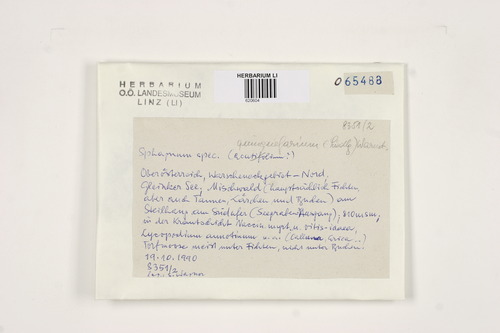 HERBARIUM
O.Ö. LANDESMUSEUM
LINZ (LI)
HERBARIUM LI
065488
8351/2
Sphagnum spec.
Oberösterreich, Warscheneckgebiet - Nord,
Gleinker See, Mischwald (hauptsächlich Fichten,
aber auch Tannen, Lärchen und Buchen) am
Steilhang am Südufer 810msm,
in der Krautschicht Vaccin. myrt. u. vitis-idaea,
Lycopodium annotinum u.a. (Calluna, Erica..)
Torfmoose meist unter Fichten, nicht unter Buchen.
19.10.1990
8351/2